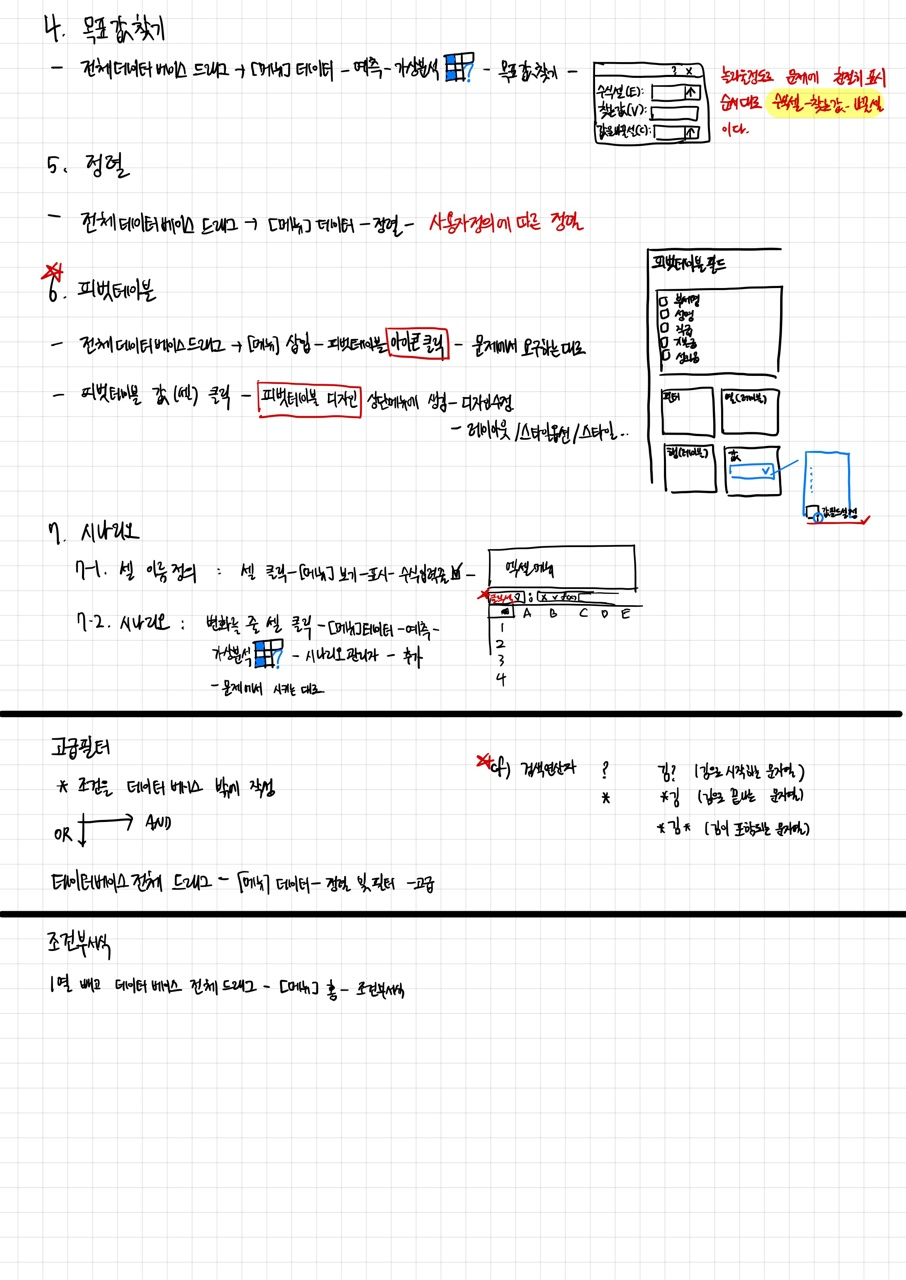 4. 목표값찾기
- 전체데이터베이스 드래그 → [메뉴] 데이터 - 예측 - 가상분석 ? - 목표값찾기 -
? x
수식셀(E):
찾는값(V):
값을바꿀셀(C):
놀라울정도로 문제에 친절히 표시
순서대로 수식셀-찾는값-바꿀셀
이다.
5. 정렬
- 전체데이터베이스 드래그 → [메뉴] 데이터 - 정렬 - 사용자정의에 따른 정렬
☆
6. 피벗테이블
- 전체데이터베이스드래그 → [메뉴] 삽입 - 피벗테이블 아이콘 클릭 - 문제에서 요구하는대로
- 피벗테이블 값(셀) 클릭 - 피벗테이블 디자인 상단메뉴에 생김 - 디자인수정
- 레이아웃/스타일옵션/스타일..
피벗테이블 필드
부서명
성명
직급
기본급
상여금
필터
열(레이블)
행(레이블)
값
값필드설정
7. 시나리오
7-1. 셀 이름 정의 : 셀 클릭 - [메뉴] 보기 - 표시 - 수식입력줄 ☑ -
엑셀메뉴
A B C D E
1
2
3
4
7-2. 시나리오 : 변화를 줄 셀 클릭 - [메뉴] 데이터 - 예측 -
가상분석 ? - 시나리오관리자 - 추가
- 문제에서 시키는 대로
고급필터
* 조건을 데이터 베이스 밖에 작성
AND
OR
데이터베이스 전체 드래그 - [메뉴] 데이터 - 정렬 및 필터 - 고급
☆ cf) 검색연산자 ? 김? (김으로 시작하는 문자열)
* *김 (김으로 끝나는 문자열)
*김* (김이 포함되는 문자열)
조건부서식
1열 빼고 데이터 베이스 전체 드래그 - [메뉴] 홈 - 조건부서식